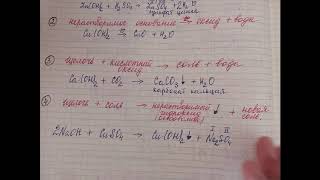 Zn(OH)₂ + H₂SO₄ → ZnSO₄ + 2H₂O
② нерастворимое основание → оксид + вода
Cu(OH)₂ → CuO + H₂O
③ щелочь + кислотный оксид → соль + вода
Ca(OH)₂ + CO₂ → CaCO₃↓ + H₂O
карбонат кальция
④ щелочь + соль → нерастворимый гидроксид (основание) ↓ + новая соль
2NaOH + CuSO₄ → Cu(OH)₂↓ + Na₂SO₄